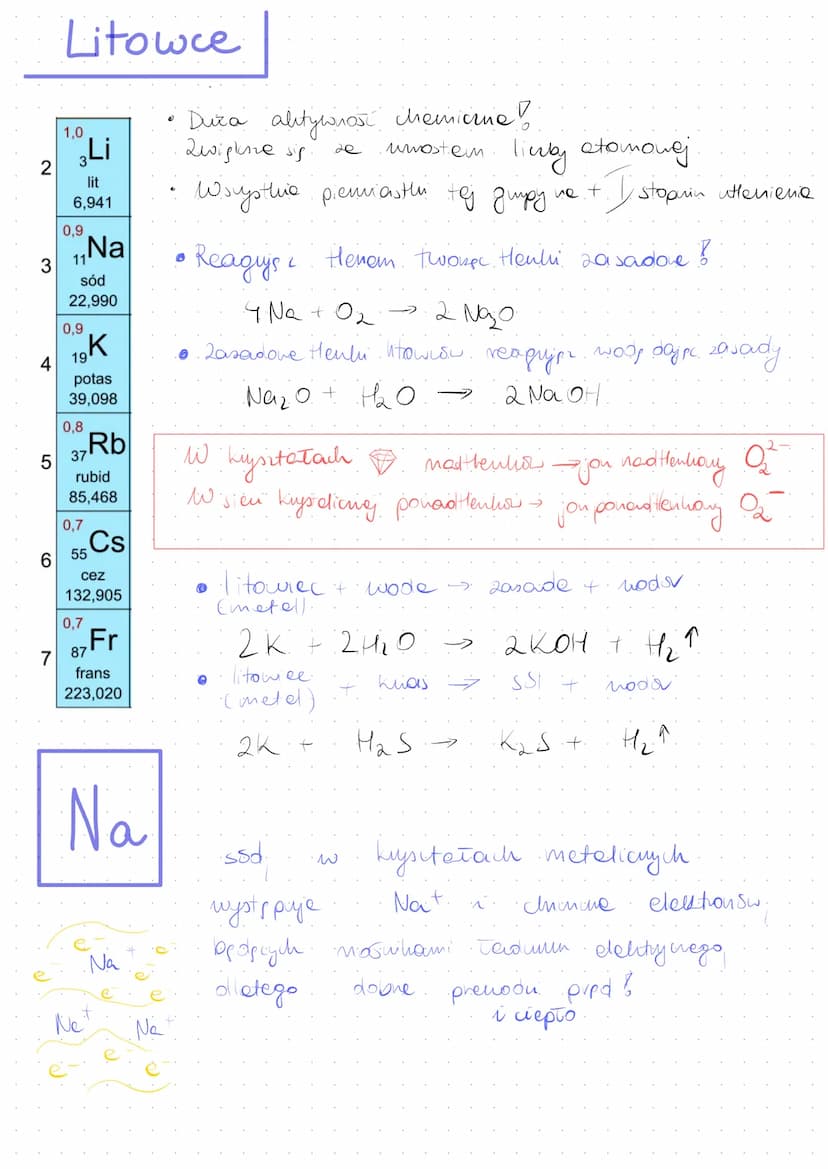 Litowce
2
1,0
3Li
lit
6,941
3
0,9
11Na
sód
22,990
4
0,9
19K
potas
39,098
5
0,8
37Rb
rubid
85,468
6
0,7
55Cs
cez
132,905
7
0,7
87Fr
frans
223,020
• Duża aktywność chemiczna!
Zwiększa się ze wzrostem liczby atomowej
• Wszystkie pierwiastki tej grupy na + I stopniu utlenienia
• Reagują z tlenem tworząc tlenki zasadowe!
4Na + O₂ → 2 Na₂O
• Zasadowe tlenki litowców reagują z wodą dając zasady
Na₂O + H₂O → 2NaOH
W kryształach nadtlenków → jon nadtlenkowy O₂²⁻
W sieci krystalicznej ponadtlenków → jon ponadtlenkowy O₂⁻
• litowiec + woda → zasada + wodór
(metal)
2K + 2H₂O → 2KOH + H₂↑
• litowce + kwas → sól + wodór
(metal)
2K + H₂S → K₂S + H₂↑
Na
sód w kryształach metalicznych
występuje Na⁺ i chmura elektronów,
będących nośnikami ładunku elektrycznego,
dlatego dobrze przewodzi prąd!
i ciepło
e⁻ Na⁺ e⁻
e⁻ e⁻
e⁻ e⁻
Na⁺ Na⁺
e⁻ e⁻ e⁻